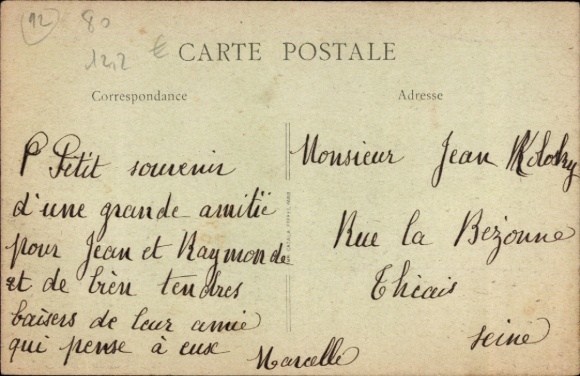 92 80
1212 €
CARTE POSTALE
Correspondance
Adresse
P Petit souvenir
d'une grande amitié
pour Jean et Raymonde
et de bien tendres
baisers de leur amie
qui pense à eux
Marcelle
Monsieur Jean
Rue la Bezonne
Thiais
Seine